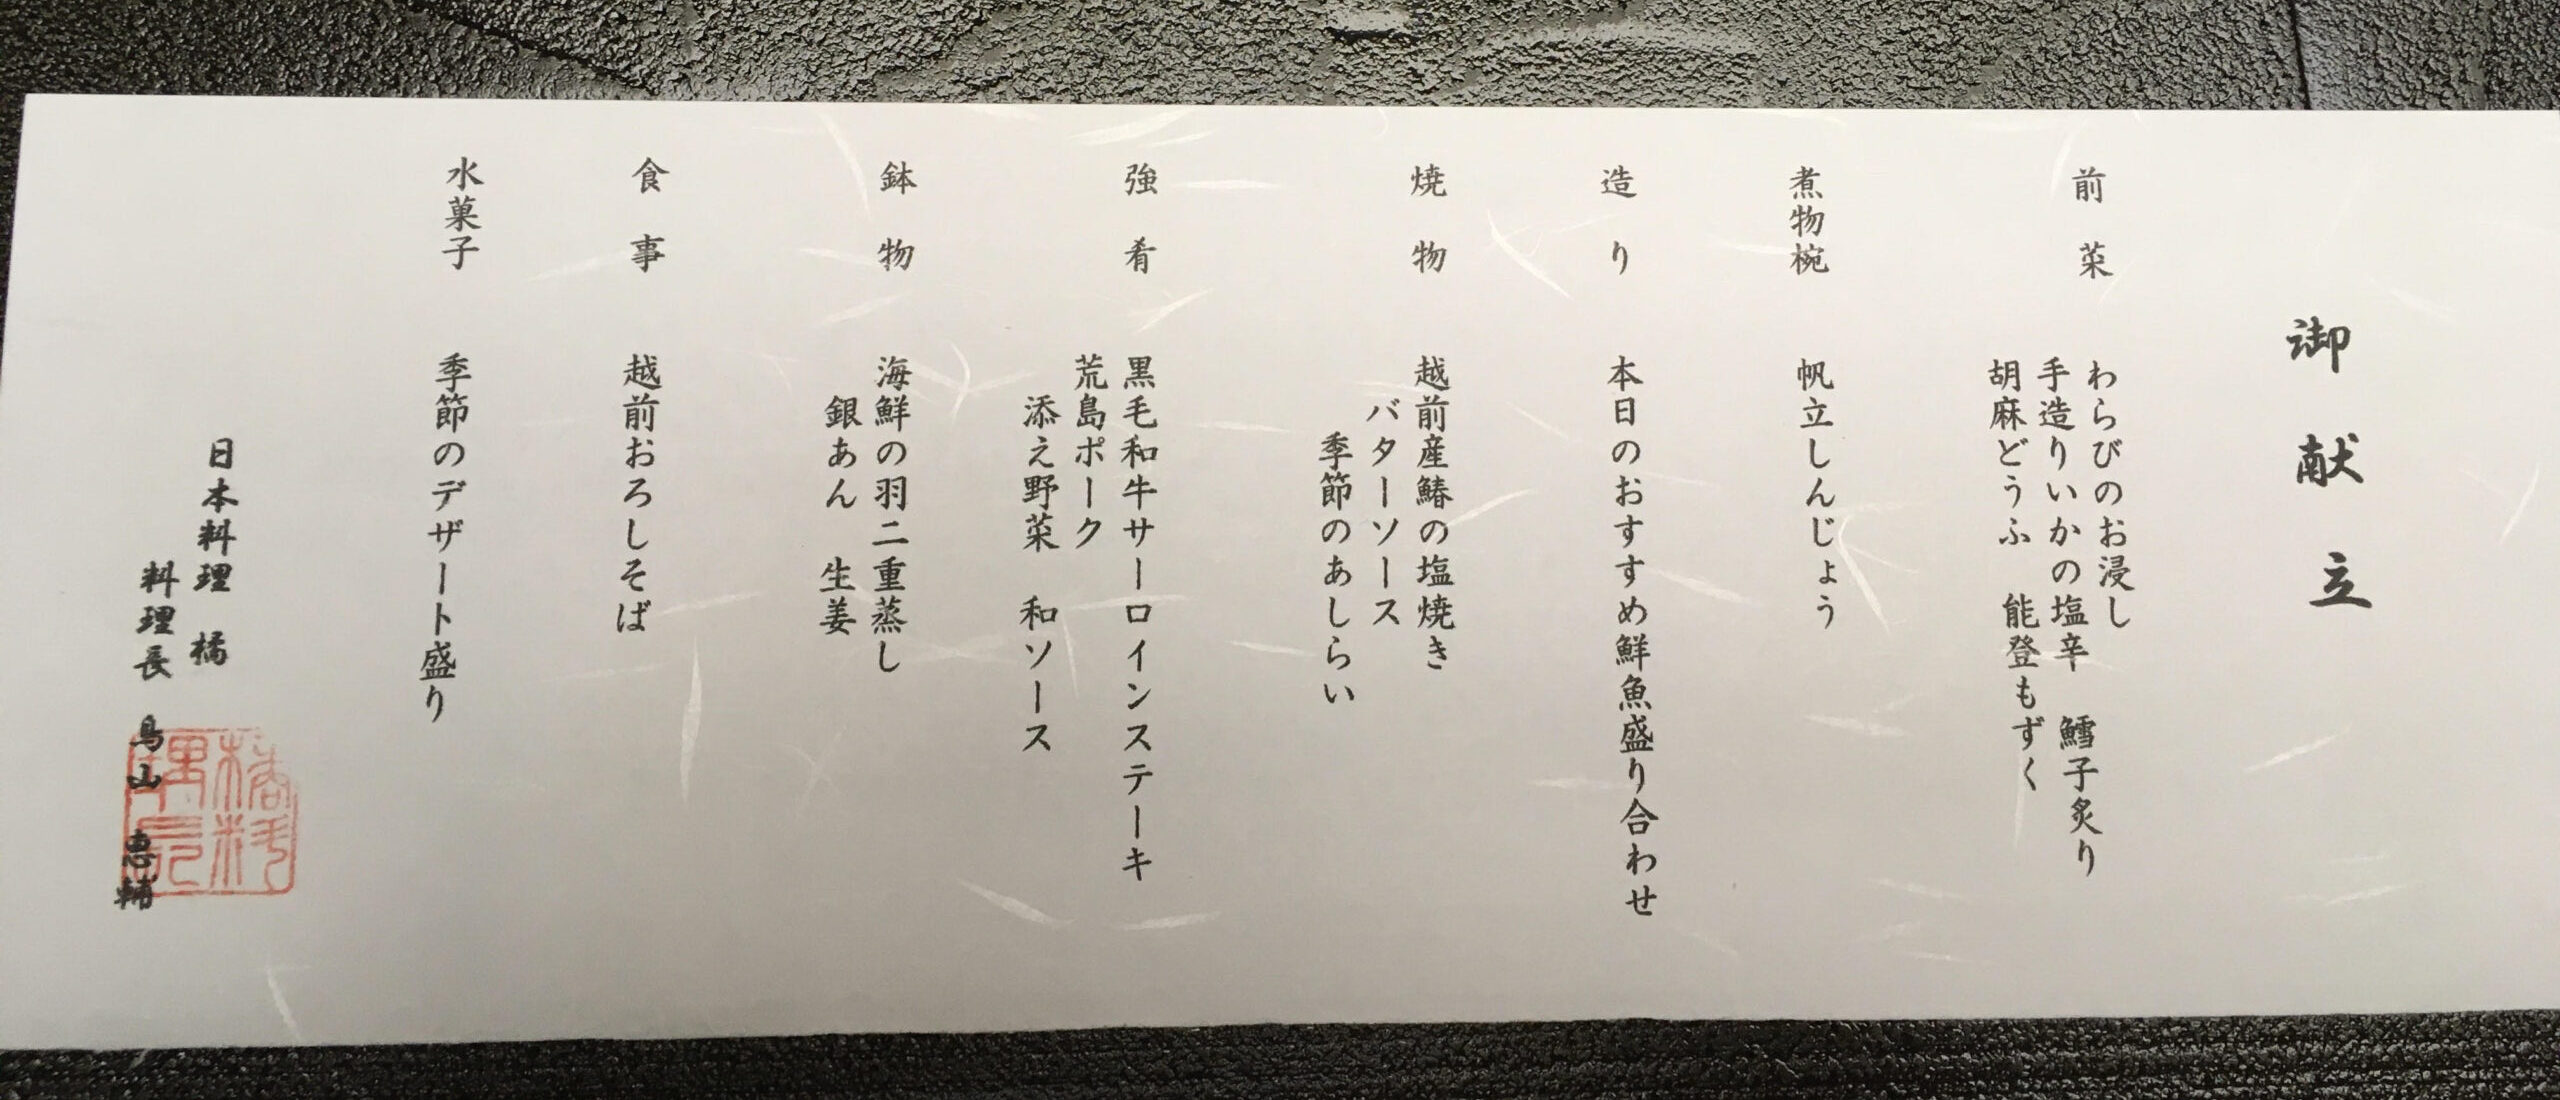 御献立
前菜
わらびのお浸し
手造りいかの塩辛　鱈子炙り
胡麻どうふ　能登もずく
煮物椀
帆立しんじょう
造り
本日のおすすめ鮮魚盛り合わせ
焼物
越前産鰆の塩焼き
バターソース
季節のあしらい
強肴
黒毛和牛サーロインステーキ
荒島ポーク
添え野菜　和ソース
鉢物
海鮮の羽二重蒸し
銀あん　生姜
食事
越前おろしそば
水菓子
季節のデザート盛り
日本料理　橘
料理長　鳥山　恵輔